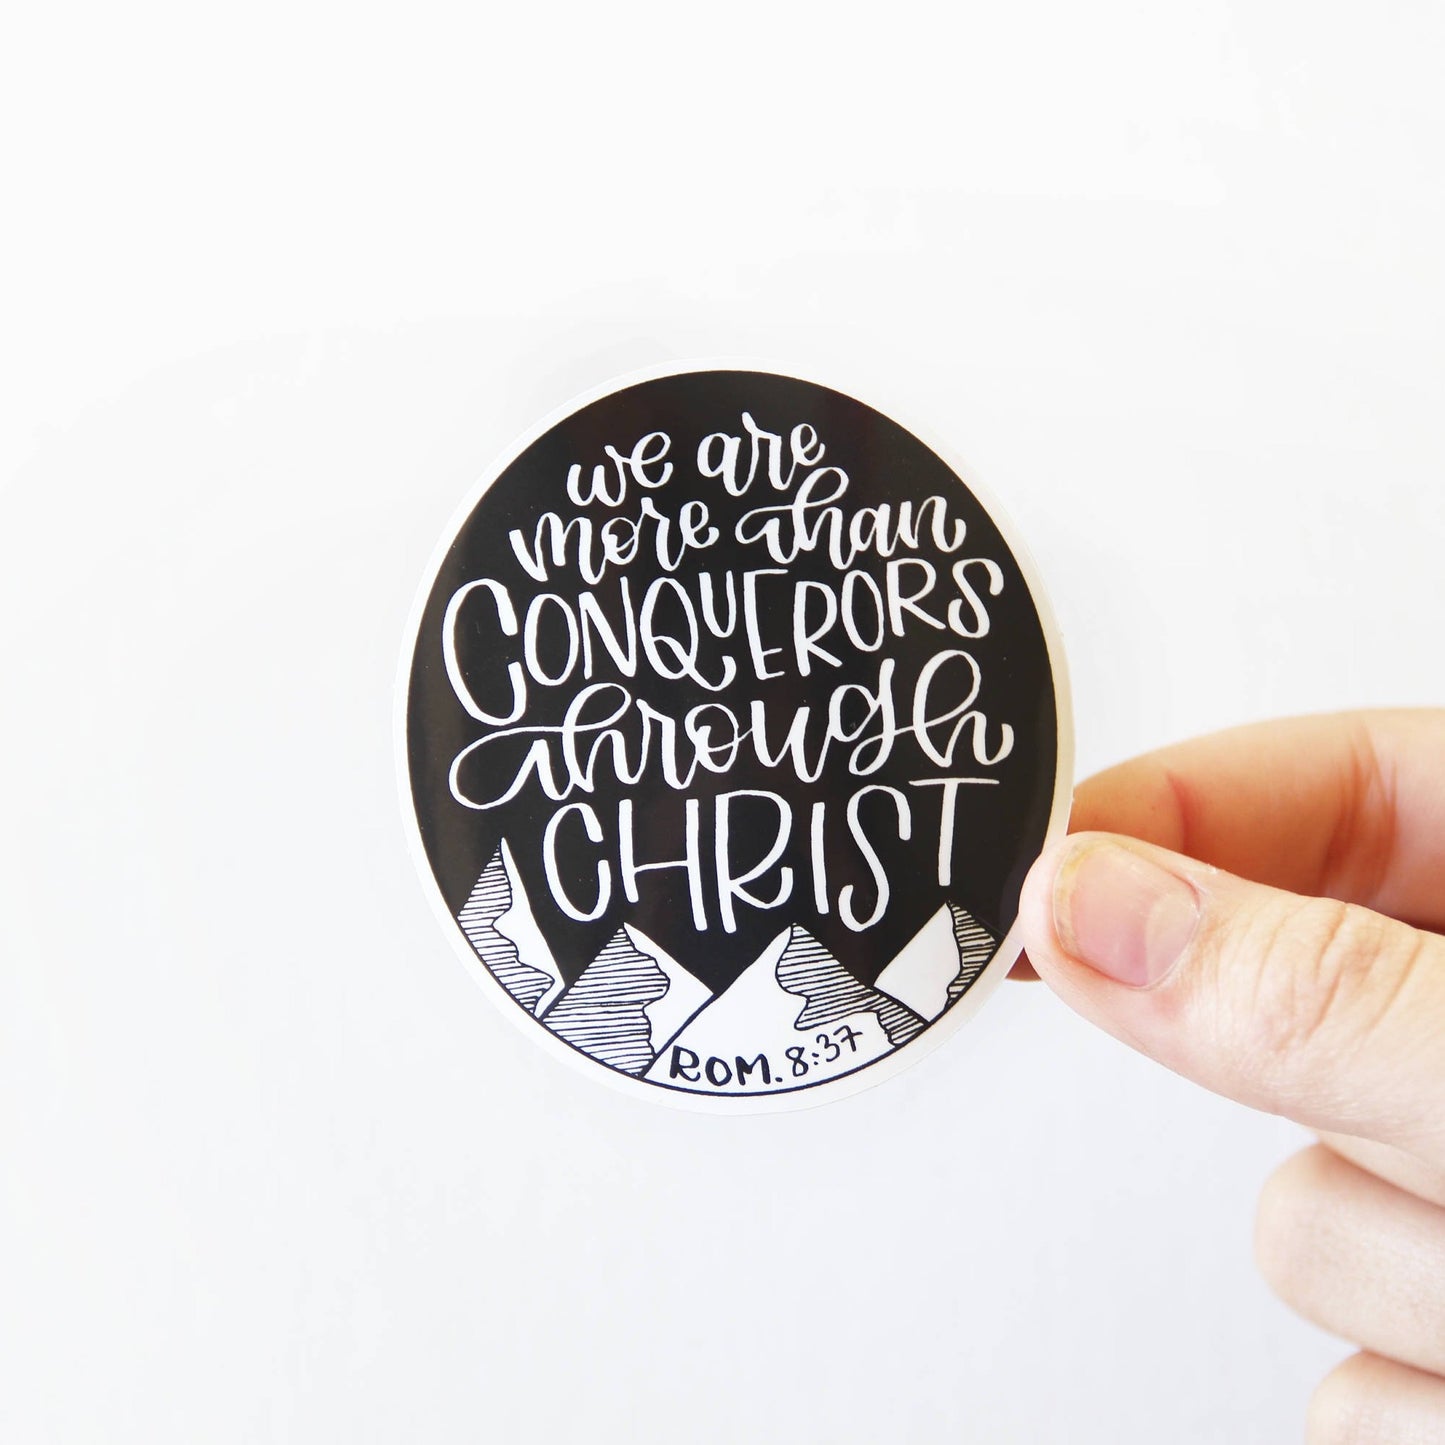 we are
more than
CONQUERORS
through
CHRIST
ROM. 8:37